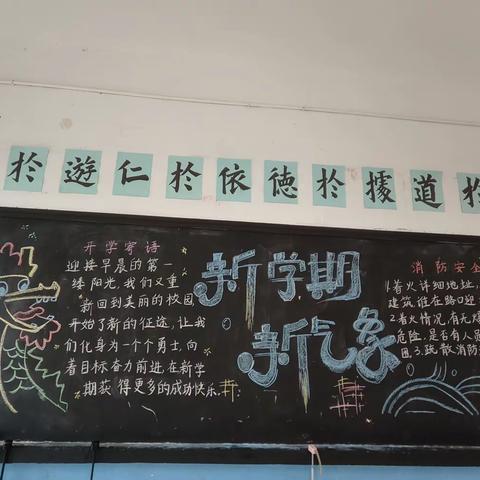 於遊仁於依德於據道於
开学寄语
迎接早晨的第一
缕阳光,我们又重
新回到美丽的校园
开始了新的征途,让我
们化身为一个个勇士,向
着目标奋力前进,在新学
期获得更多的成功快乐.
新学期
新气象
消防安全
1.着火详细地址,
建筑谁在路口迎
2.着火情况,有无爆
危险,是否有人员
困3.疏散消防